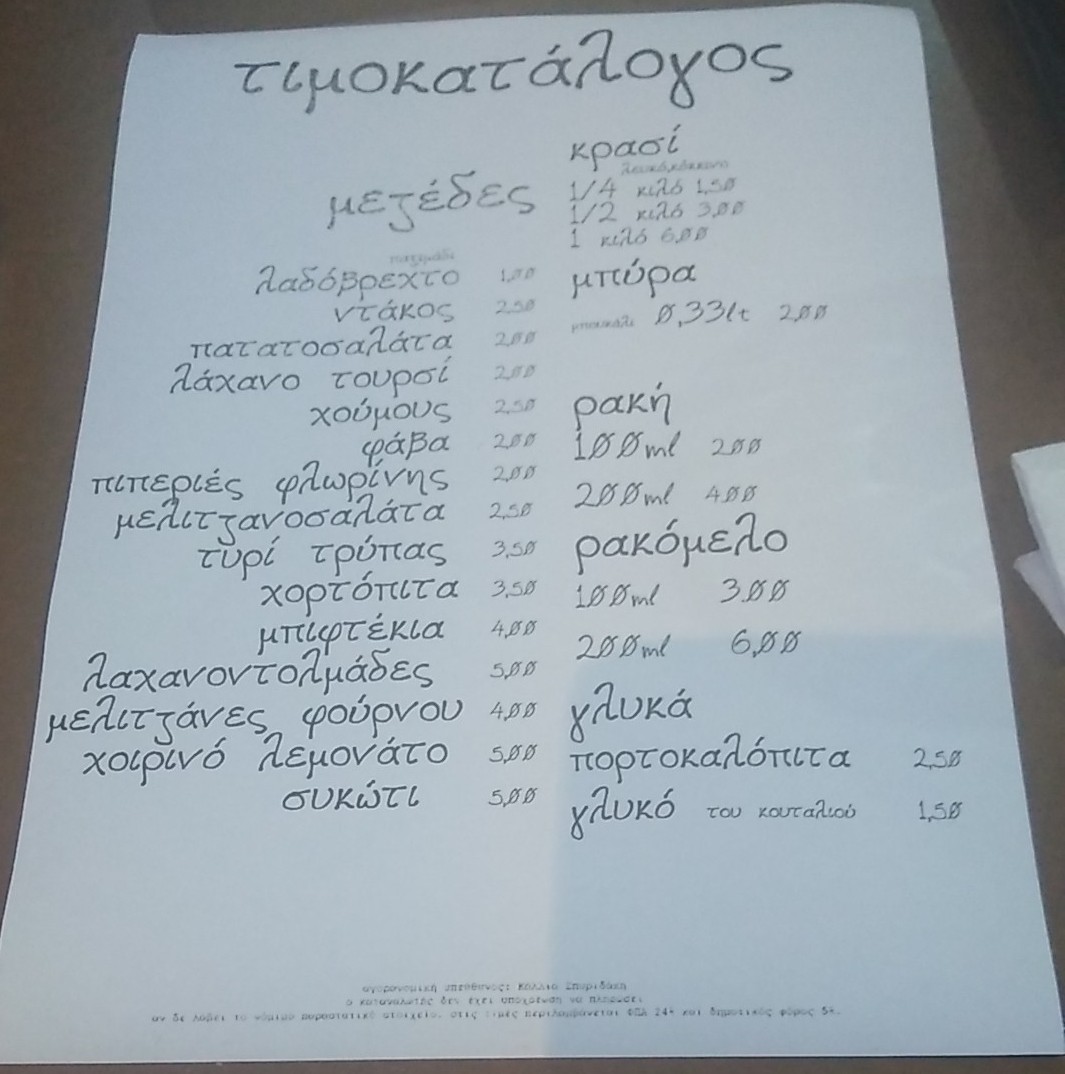 τιμοκατάλογος
μεζέδες
παξιμάδι
λαδόβρεχτο 1,00
ντάκος 2,50
πατατοσαλάτα 2,00
λάχανο τουρσί 2,00
χούμους 2,50
φάβα 2,00
πιπεριές φλωρίνης 2,00
μελιτζανοσαλάτα 2,50
τυρί τρύπας 3,50
χορτόπιτα 3,50
μπιφτέκια 4,00
λαχανοντολμάδες 5,00
μελιτζάνες φούρνου 4,00
χοιρινό λεμονάτο 5,00
συκώτι 5,00
κρασί
λευκό,κόκκινο
1/4 κιλό 1,50
1/2 κιλό 3,00
1 κιλό 6,00
μπύρα
μπουκάλι 0,33lt 2,00
ρακή
100ml 200
200ml 400
ρακόμελο
100ml 3.00
200ml 6,00
γλυκά
πορτοκαλόπιτα 2,50
γλυκό του κουταλιού 1,50
αγορανομική υπεύθυνος: Κάλλια Σπυριδάκη
ο καταναλωτής δεν έχει υποχρέωση να πληρώσει
αν δε λάβει το νόμιμο παραστατικό στοιχείο. στις τιμές περιλαμβάνεται ΦΠΑ 24% και δημοτικός φόρος 5%.